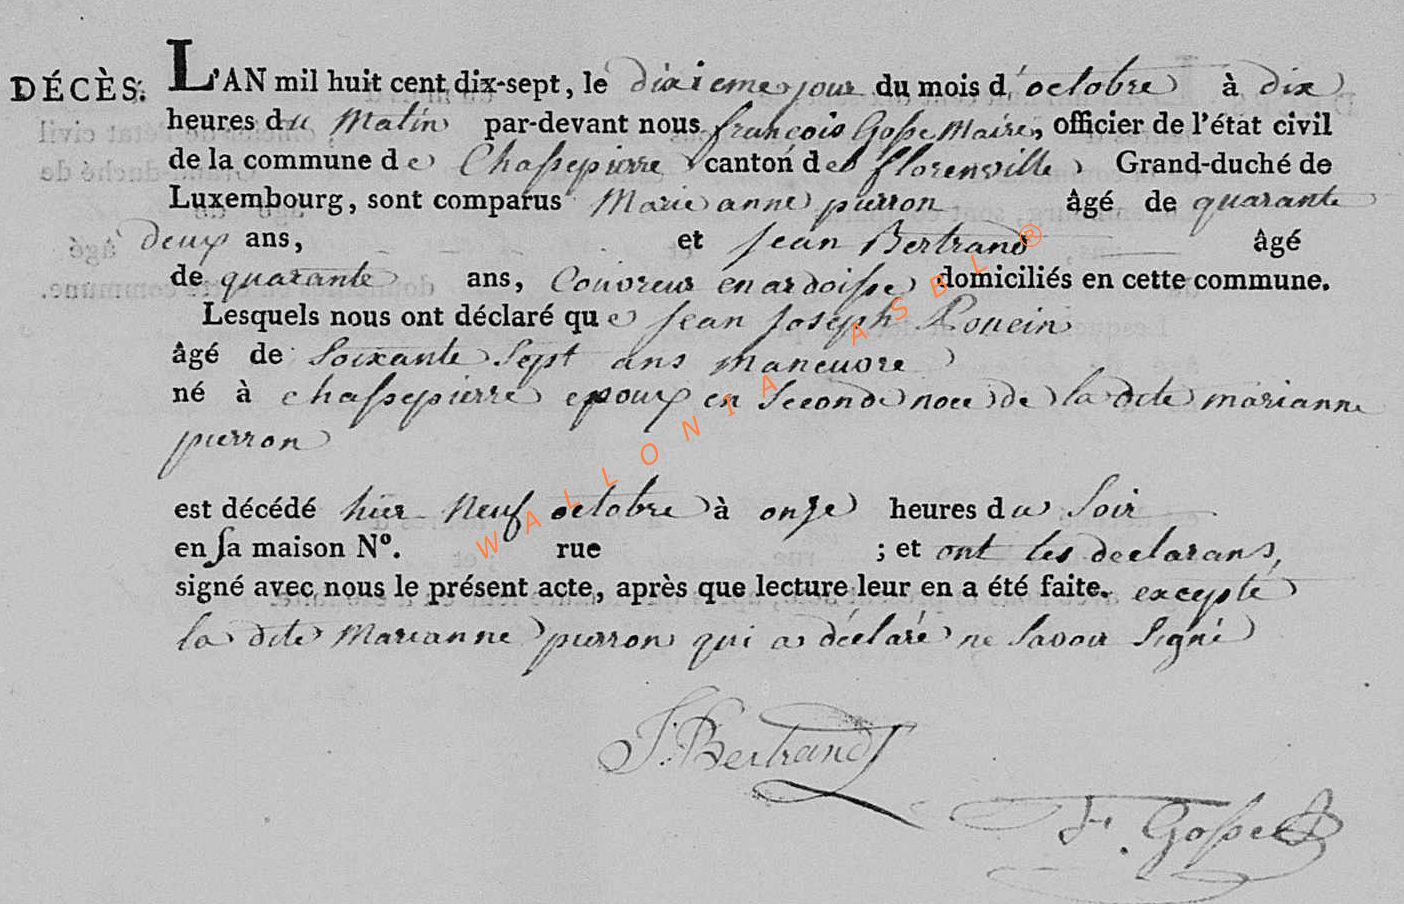 DÉCÈS. L'AN mil huit cent dix-sept, le dixieme jour du mois d'octobre à dix
heures du Matin par-devant nous françois Gosse Maire, officier de l'état civil
de la commune de Chassepierre canton de florenville Grand-duché de
Luxembourg, sont comparus Marie anne pierron âgé de quarante
deux ans, et Jean Bertrand âgé
de quarante ans, Couvreur en ardoisse domiciliés en cette commune.
Lesquels nous ont déclaré que Jean Joseph
âgé de Soixante Sept ans maneuvre
né à chassepierre epoux en Seconde noce de la dite marianne
pierron
est décédé hier Neuf octobre à onze heures du Soir
en sa maison N°. rue ; et ont les declarans,
signé avec nous le présent acte, après que lecture leur en a été faite. excepté
la dite Marianne pierron qui a déclaré ne Savoir Signé
J. Bertrand
F. Gosse
WALLONIA ASBL ®